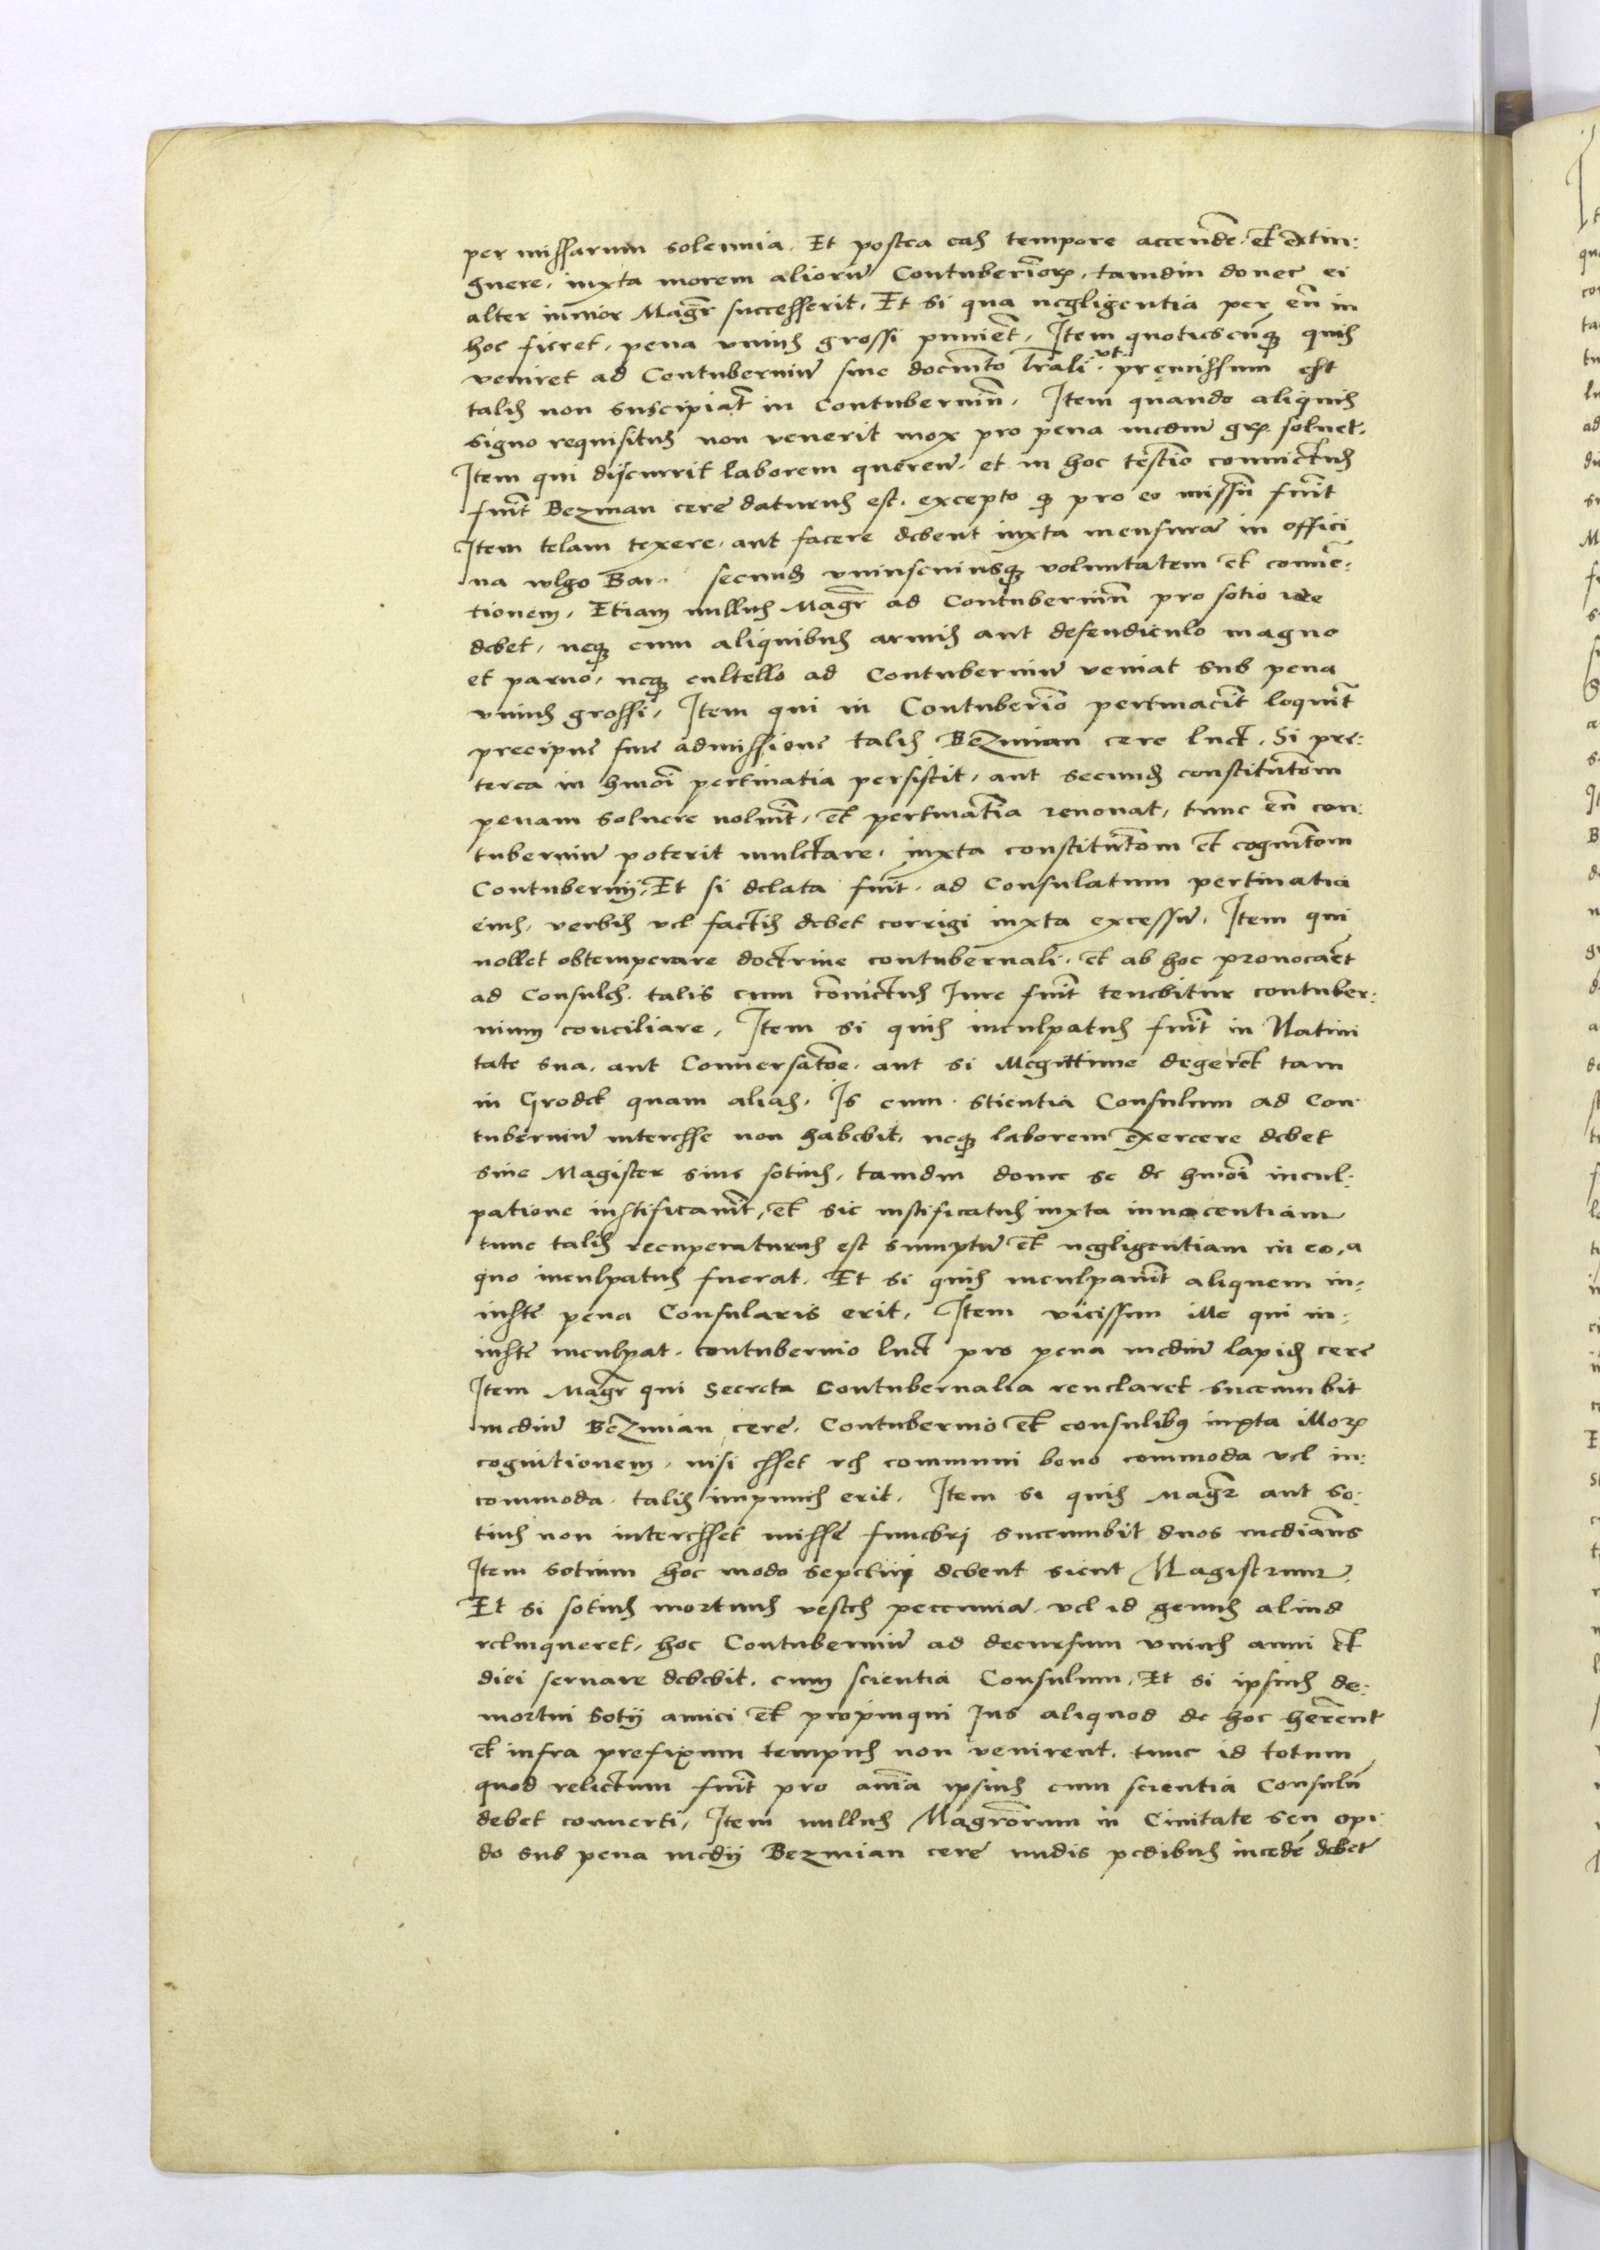 per missarum solennia. Et postea eas tempore accende. et extin:
guere. iuxta morem aliorū Contuberniorꝝ. tamdiu donec ei
alter iunior Magr̄ successerit. Et si qua negligentia per eū in
hoc fieret. pena vnius grossi puniet̄. Item quotiescūqꝫ quis
veniret ad Contuberniū sine docum̄to lr̄ali. vt pręmissum est
talis non suscipiat̄ in Contuberniū. Item quando aliquis
signo requisitus non venerit mox pro pena mediū gr. soluet.
Item qui discurrit laborem querens. et in hoc testīo conuictus
fuit̄ Bezman cere daturus est. excepto qꝫ pro eo missū fuit̄
Item telam texere. aut facere debent iuxta mensurā in offici
na wlgo Bar. secundū vniuscuiusqꝫ voluntatem et conuē:
tionem. Etiam nullus Magr̄ ad Contuberniū pro sotio ire
debet. neqꝫ cum aliquibus armis aut defendiculo magno
et paruo. neqꝫ cultello ad Contuberniū veniat sub pena
vnius grossi. Item qui in Contuberīo pertinacit̄ loquit̄
precipue sine admissione talis Bezmian cere luet. Si pre:
terea in hmōi pertinatia persistit. aut secundū constitutōm
penam soluere noluit̄. et pertinatīa renouat. tunc eū con:
tuberniū poterit mulctare. iuxta constitutōm et cognitōm
Contubernij. Et si delata fuit̄. ad Consulatum pertinatia
eius. verbis vel factis debet corrigi iuxta excessū. Item qui
nollet obtemperare doctrine contubernali. et ab hoc prouocaret
ad Consules. talis cum cōuictus Iure fuit̄ tenebitur contuber:
nium conciliare. Item si quis inculpatus fuit̄ in Natiui
tate sua. aut Conuersatōe. aut si illegittime degeret tam
in Grodek quam alias. Is cum scientia Consulum ad Con
tuberniū interesse non habebit. neqꝫ laborem exercere debet
siue Magister siue sotius. tamdiu donec se de hmōi incul:
patione iustificauit̄. et sic iustificatus iuxta innocentiam
tunc talis recuperaturus est sumptū et negligentiam in eo. a
quo inculpatus fuerat. Et si quis inculpauit̄ aliquem in:
iuste pena Consularis erit. Item vicissim ille qui in:
iuste inculpat. contubernio luet pro pena mediū lapidē cere
Item Magr̄ qui Secreta Contubernalia reuelaret succumbit
mediū Bezmian cere. Contubernio et consulibus iuxta illorꝝ
cognitionem. nisi esset res communi bono commoda vel in:
commoda. talis impunis erit. Item si quis Magr̄ aut so:
tius non interesset misse funebri succumbit duos medianos
Item sotium hoc modo sepeliri debent sicut Magistrum.
Et si sotius mortuus vestes peccunia. vel id genus aliud
relinqueret. hoc Contuberniū ad decursum vnius anni et
diei seruare debebit. cum scientia Consulum. Et si ipsius de:
mortui sotij amici et propinqui Ius aliquod de hoc herent
et infra prefixum tempus non venirent. tunc id totum
quod relictum fuit̄ pro aīa ipsius cum scientia Consulū
debet conuerti. Item nullus Magrōrum in Ciuitate seu opi
do sub pena medij Bezmian cere nudis pedibus incedē debet